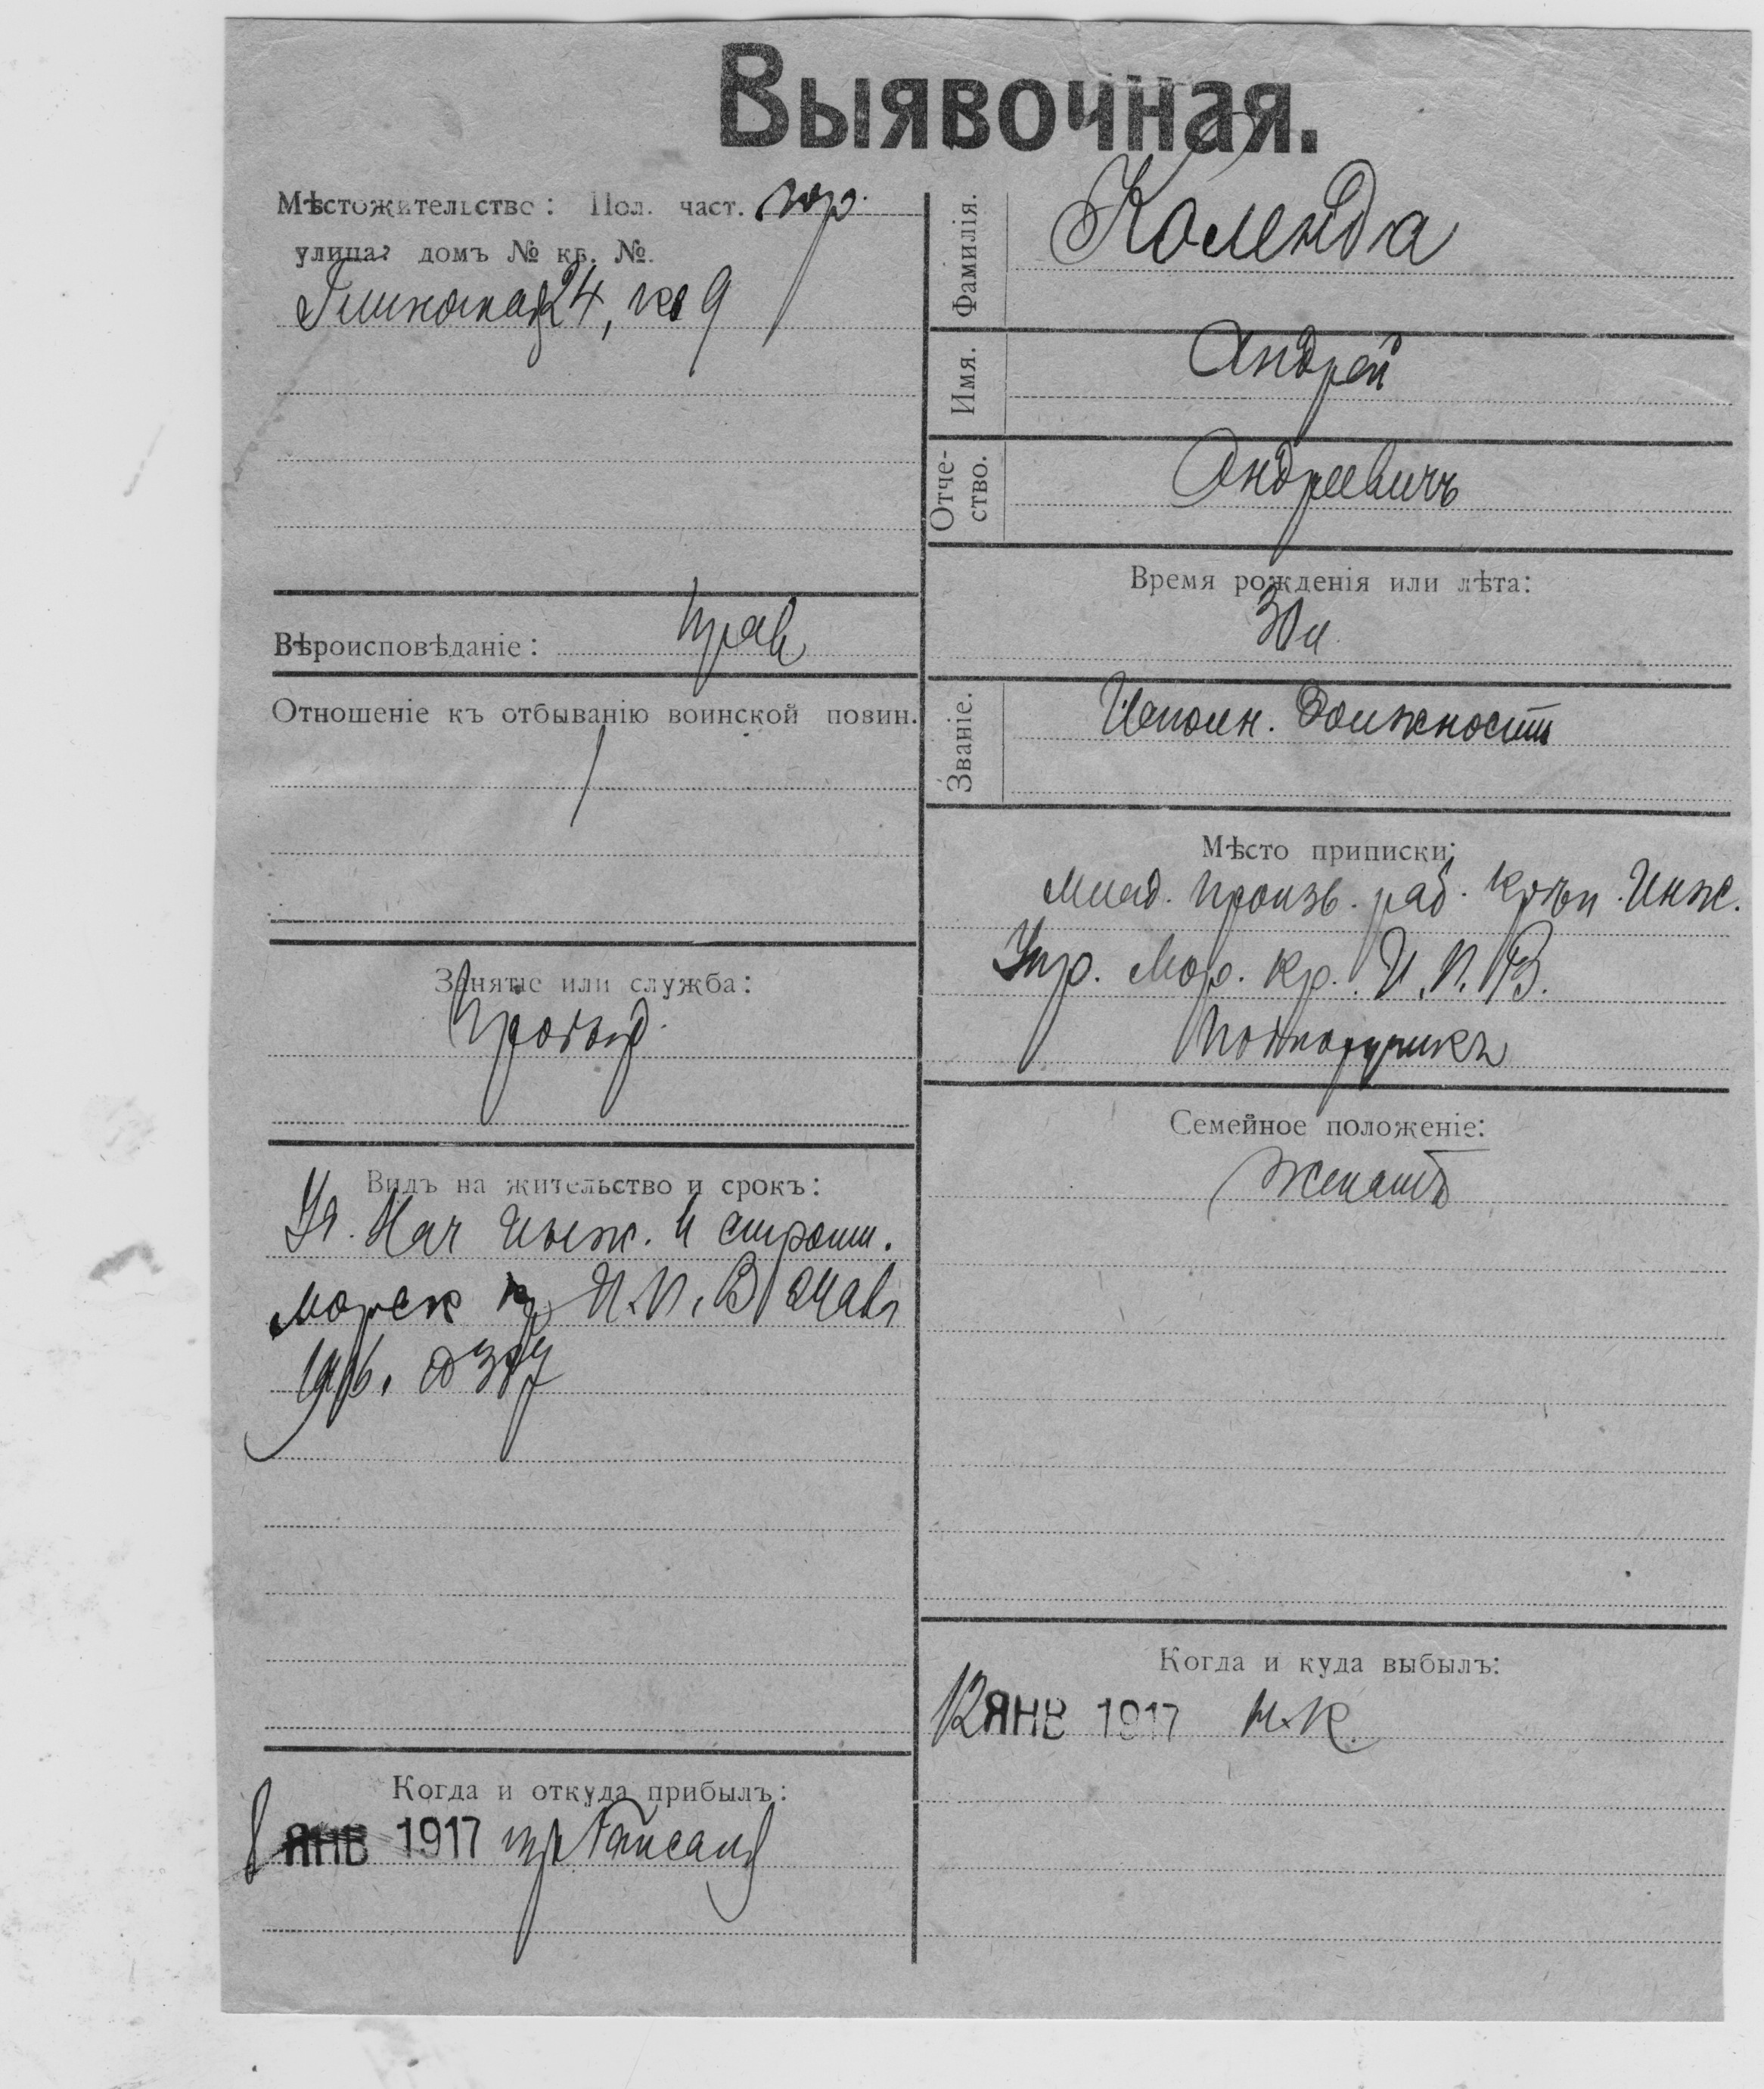 Выявочная.
Мѣстожительство: Пол. част. гор.
улица: домъ № кв. №.
24, кв 9
Вѣроисповѣданіе: прав
Отношеніе къ отбыванію воинской повин.
Занятіе или служба:
Видъ на жительство и срокъ:
Уд. Нач инж. и строит.
морск кр И.П.В 2 Мая
1916.
Когда и откуда прибылъ:
8 ЯНВ 1917
Фамилія. Коленда
Имя. Андрей
Отче-
ство. Андреевичъ
Время рожденія или лѣта:
30 л
Званіе. Исполн. Должность
Мѣсто приписки:
Млад. произв. раб. Крѣп. Инж.
Упр. Мор. кр. И.П.В.
Подпоручикъ
Семейное положеніе:
Женатъ
Когда и куда выбылъ:
12 ЯНВ 1917 н.к.